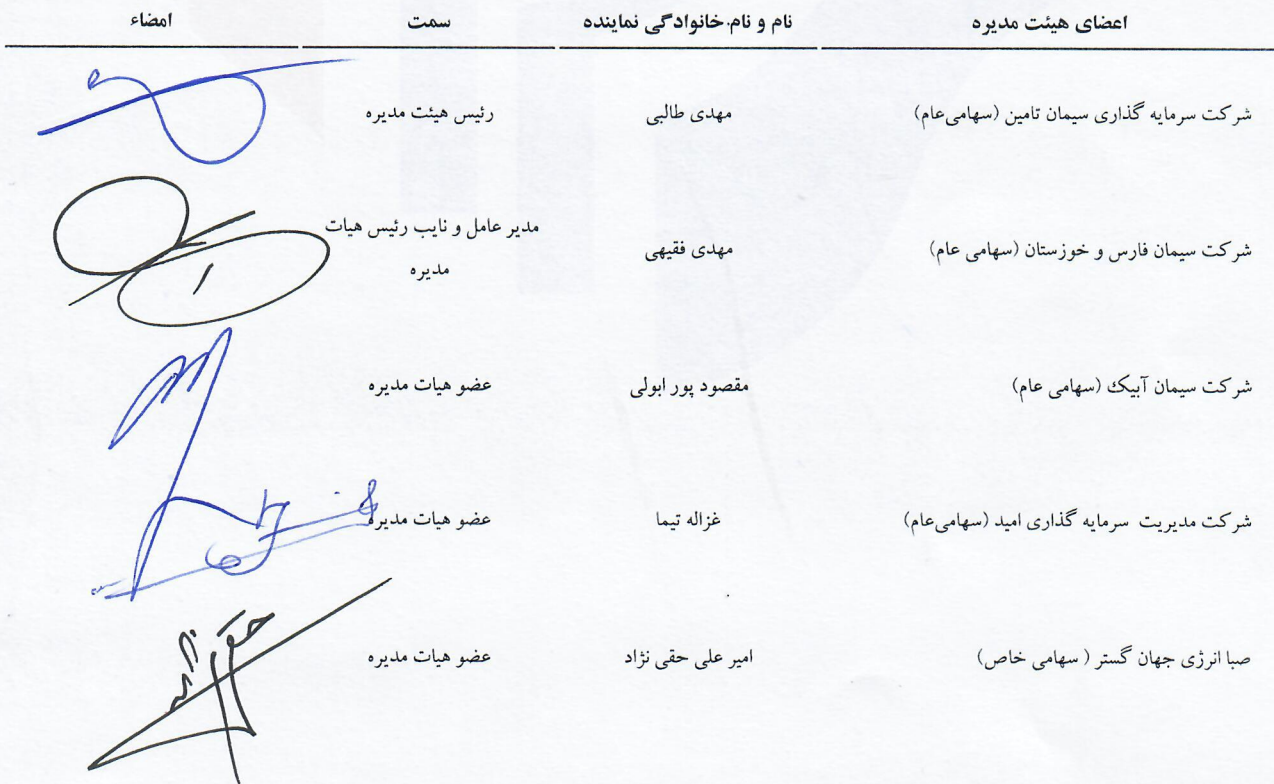 اعضای هیئت مدیره نام و نام خانوادگی نماینده سمت امضاء
شرکت سرمایه گذاری سیمان تامین (سهامی‌عام) مهدی طالبی رئیس هیئت مدیره
شرکت سیمان فارس و خوزستان (سهامی عام) مهدی فقیهی مدیر عامل و نایب رئیس هیات
مدیره
شرکت سیمان آبیک (سهامی عام) مقصود پور ابولی عضو هیات مدیره
شرکت مدیریت سرمایه گذاری امید (سهامی‌عام) غزاله تیما عضو هیات مدیره
صبا انرژی جهان گستر ( سهامی خاص) امیر علی حقی نژاد عضو هیات مدیره